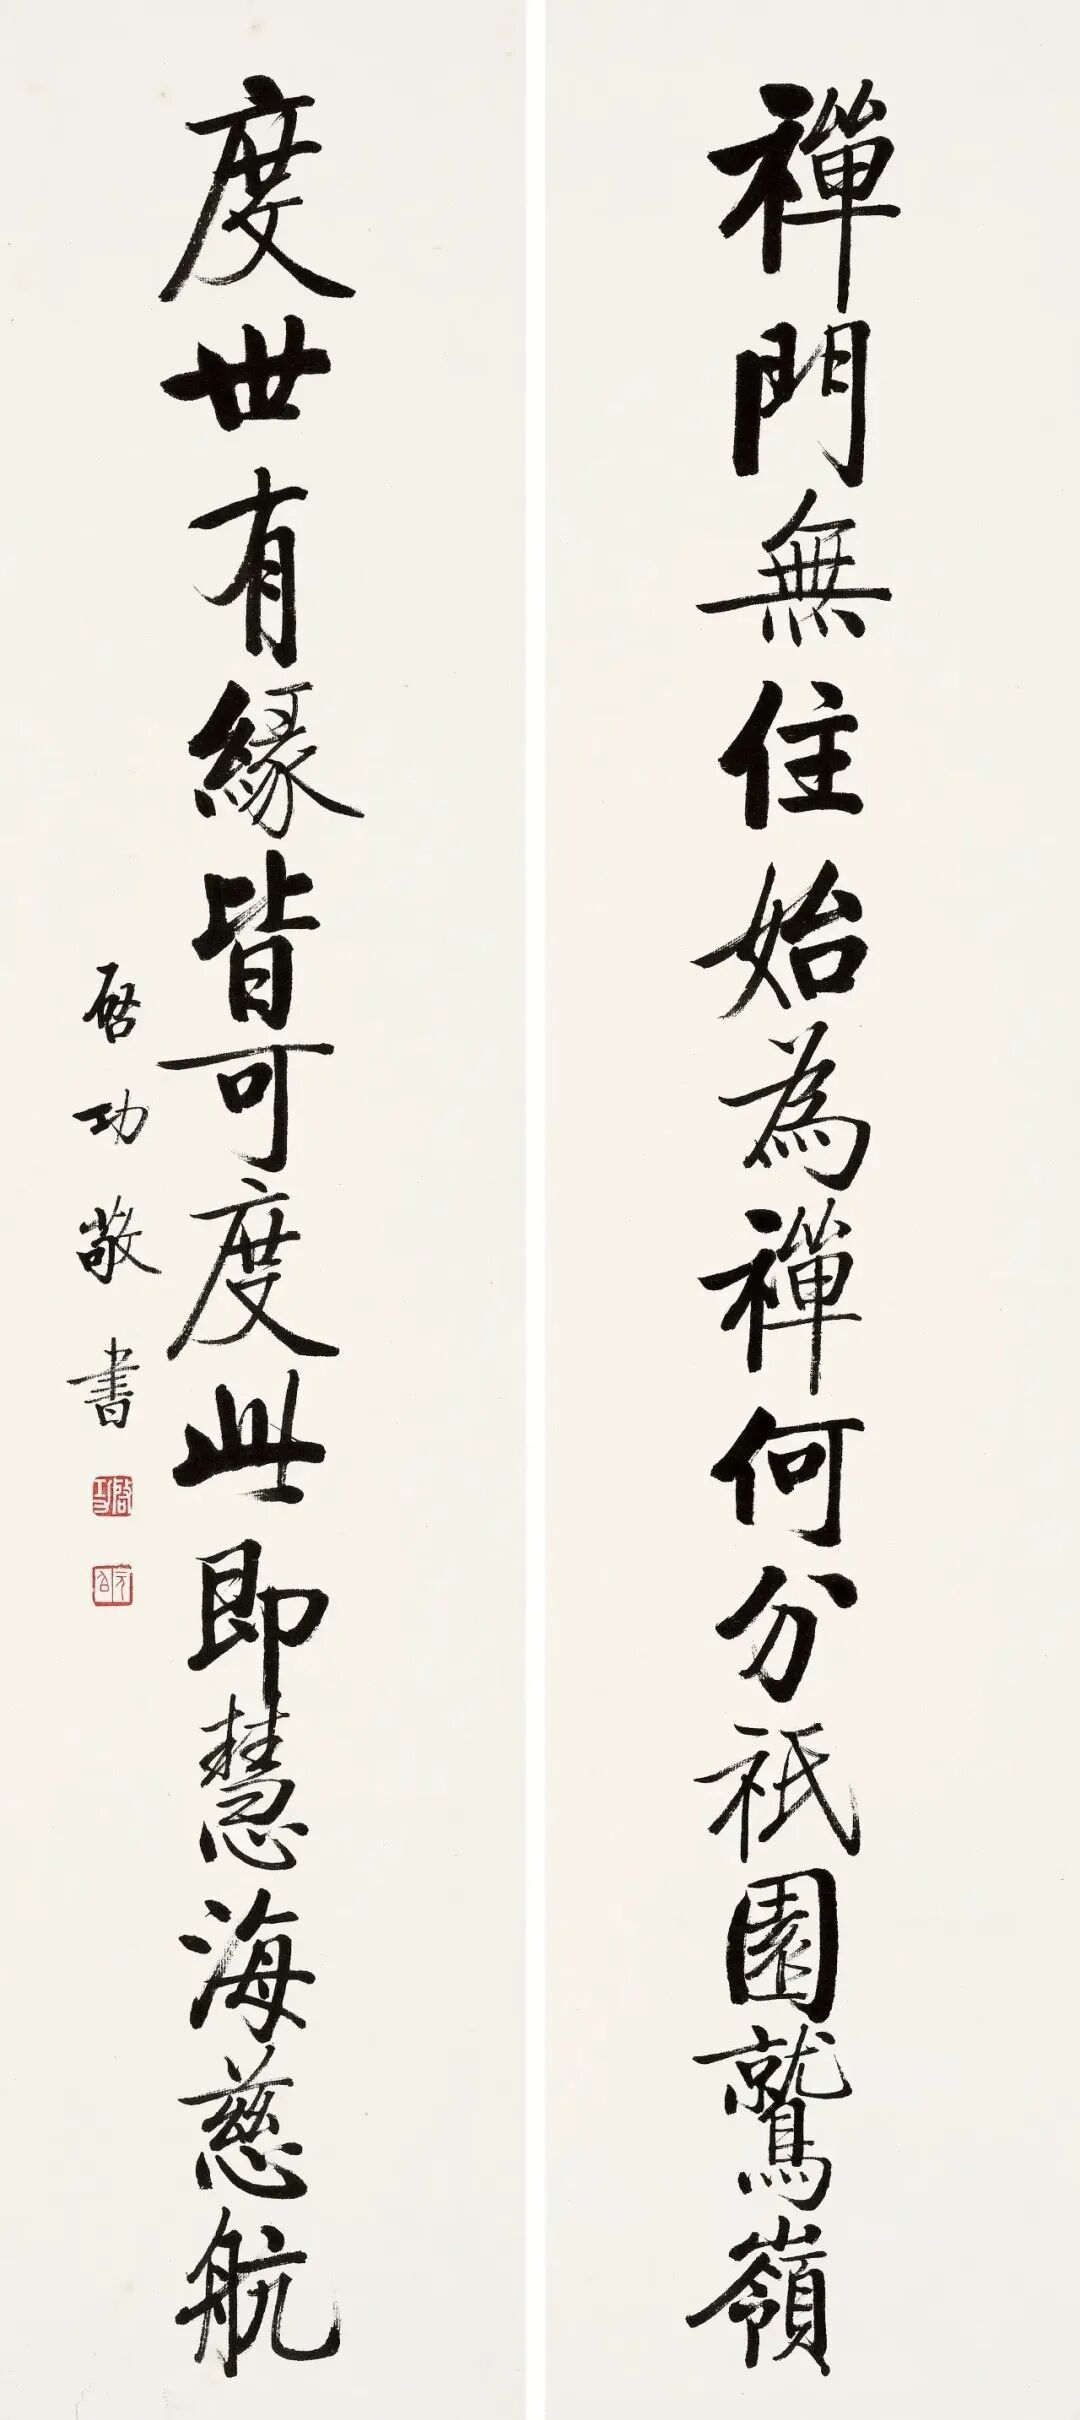 禪門無住始為禪何分祇園鷲嶺
度世有緣皆可度此即慧海慈航
啟功敬書
啟功
元白